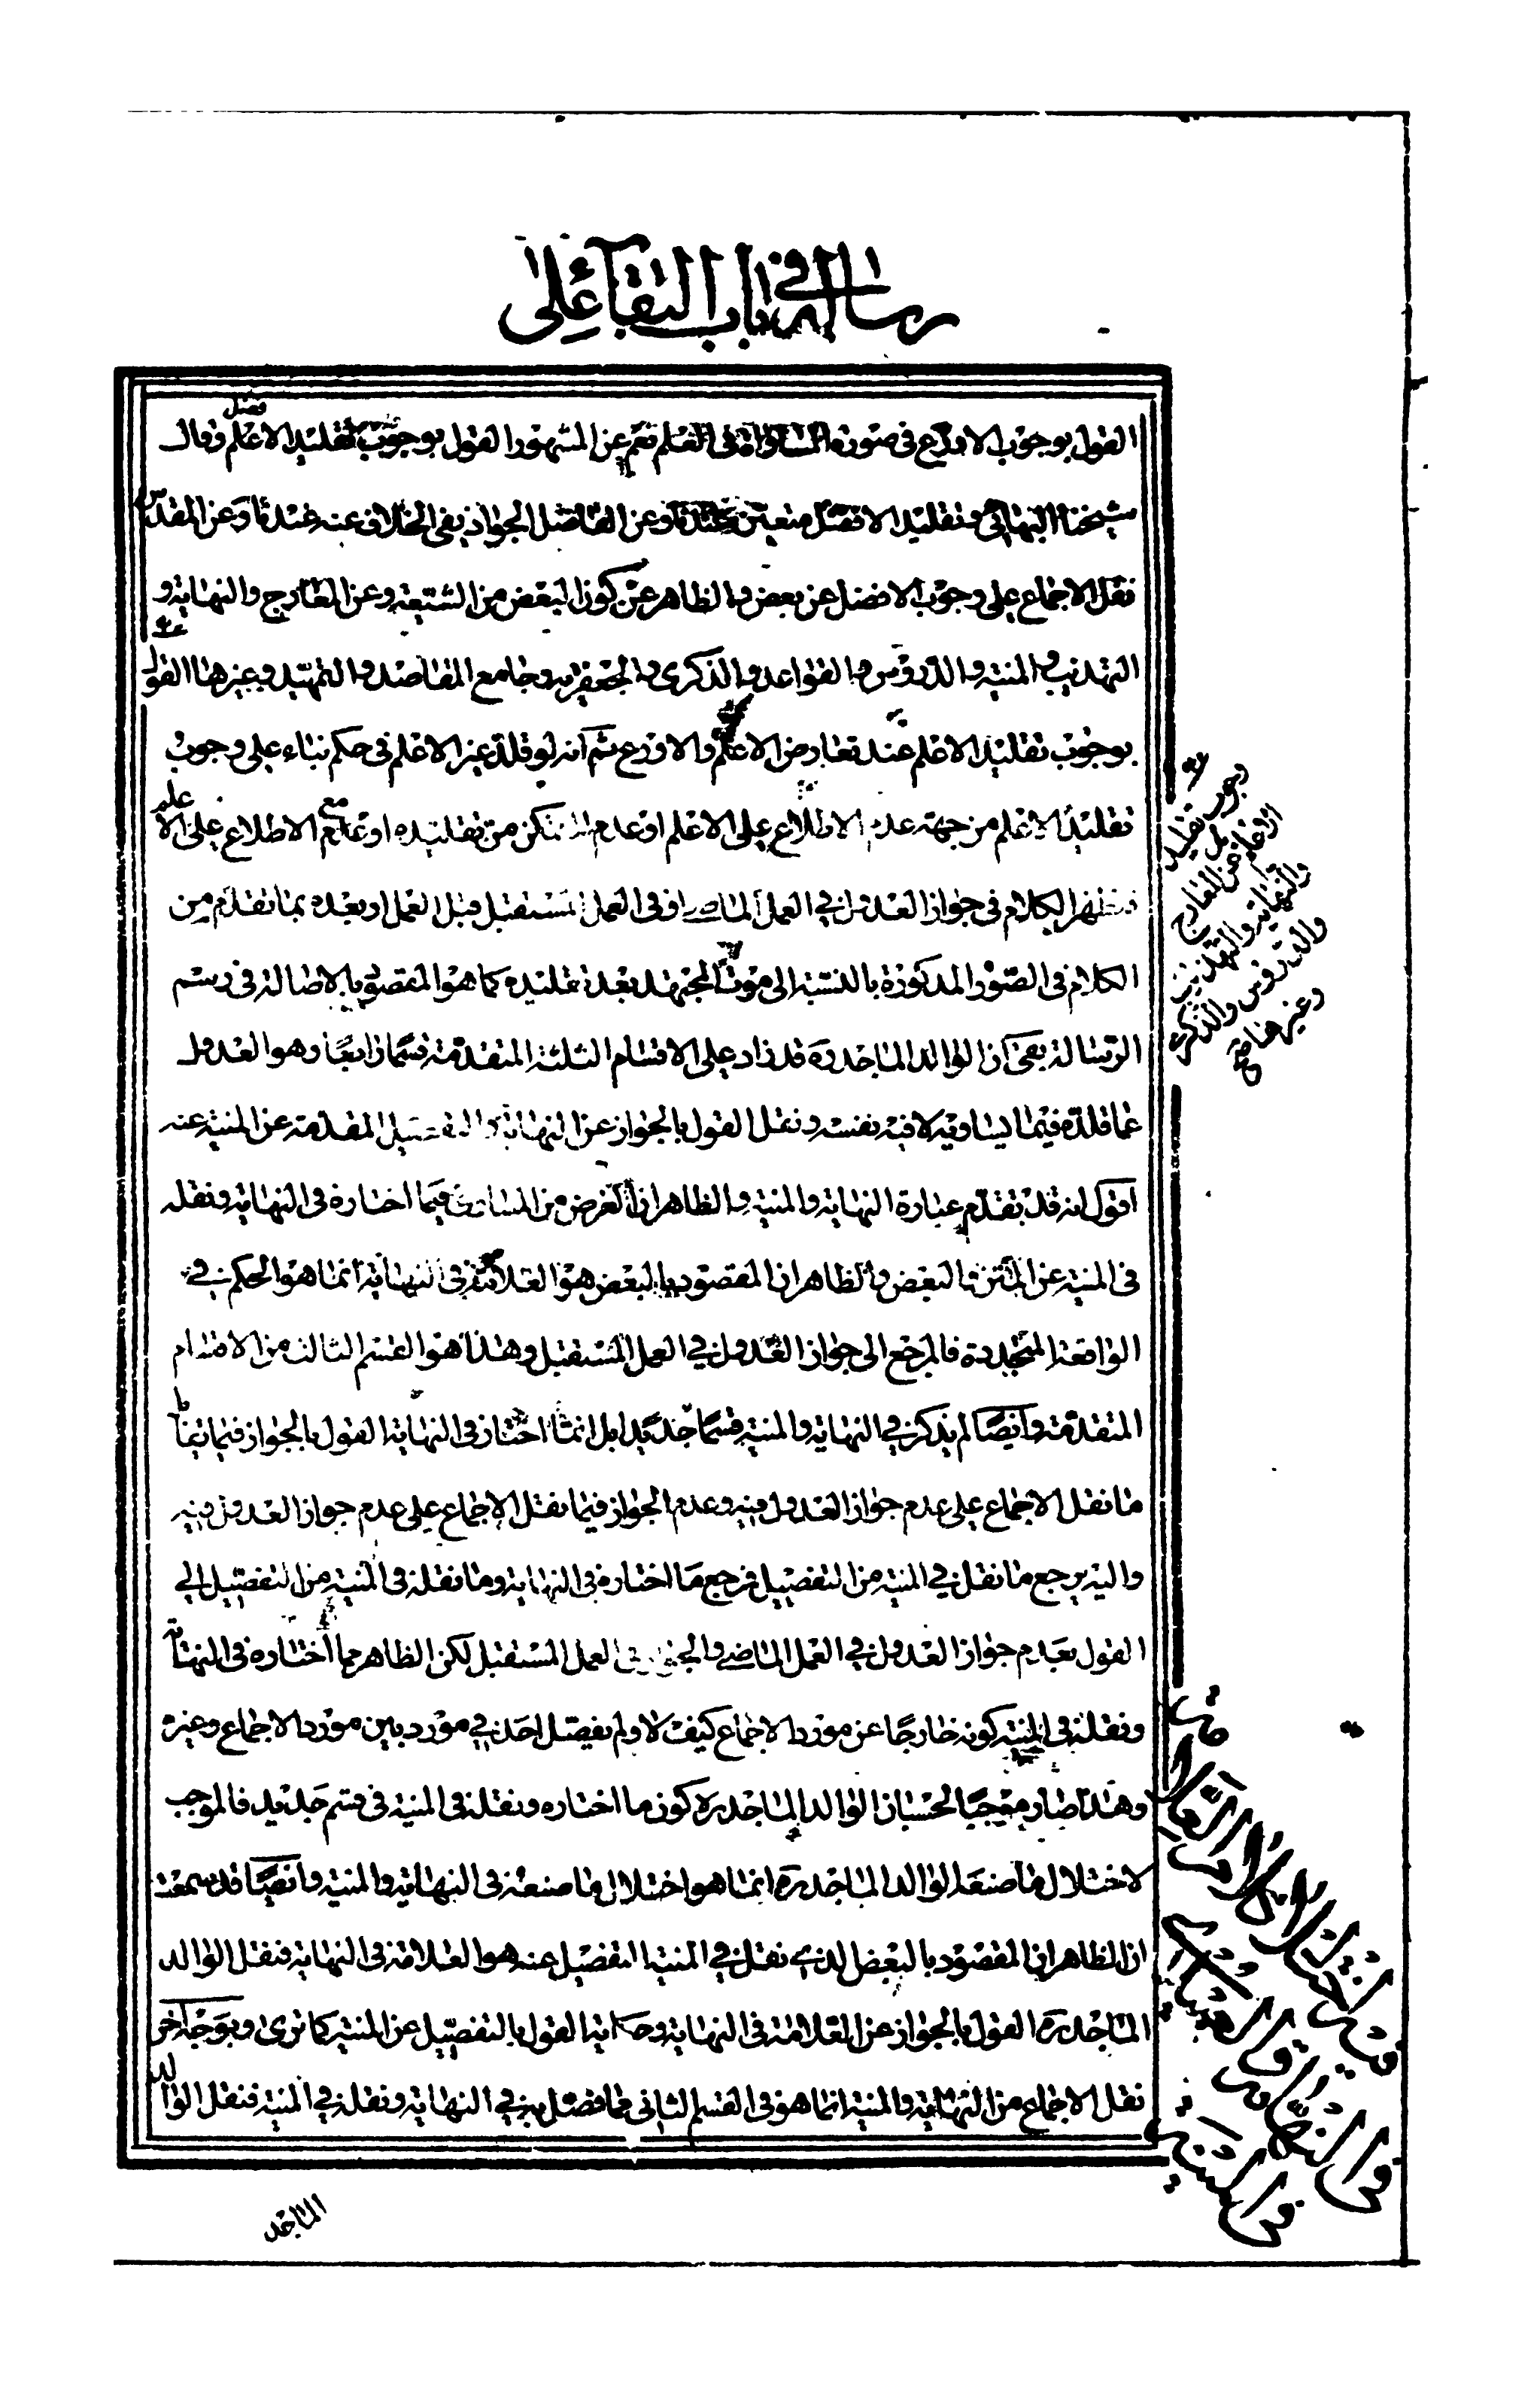 رسالة في باب البقاء على
القول بوجوب الاورع في صورة المساواة في العلم نعم عن المشهور القول بوجوب تقليد الاعلم وقال
شيخنا البهائي وتقليد الافضل متعين عندنا وعن الفاضل الجواد نفى الخلاف عنه عندنا وعن المقدس
نقل الاجماع على وجوب الافضل عن بعض والظاهر عن كون البعض من الشيعة وعن المعارج والنهاية و
التهذيب والمنية والدروس والقواعد والذكرى والجعفرية وجامع المقاصد والتمهيد وغيرها القول
بوجوب تقليد الاعلم عند تعارض الاعلم والاورع ثم انه لو قلد غير الاعلم في حكم بناء على وجوب
تقليد الاعلم من جهة عدم الاطلاع على الاعلم او عدم التمكن من تقليده او مع عدم الاطلاع على الاعلم
فيظهر الكلام في جواز العدول في العمل الماضي او في العمل المستقبل قبل العمل او بعده بما تقدم من
الكلام في الصور المذكورة بالنسبة الى موت المجتهد بعد تقليده كما هو المقصود بالاصالة في رسم
الرسالة بقى ان الوالد الماجد ره قد زاد على الاقسام الثلثة المتقدمة قسما رابعا وهو العدول
عما قلده فيما يساويه لا فيه نفسه ونقل القول بالجواز عن النهاية والتفصيل المقدمة عن المنية عنه
اقول انه قد تقدم عبارة النهاية والمنية والظاهر ان الغرض من المساوى فيما اختاره في النهاية ونقله
في المنية عن البعض والظاهر ان المقصود بالبعض هو العلامة في النهاية انما هو الحكم في
الواقعة المتجددة فالمرجع الى جواز العدول في العمل المستقبل وهذا هو القسم الثالث من الاقسام
المتقدمة وايضا لم يذكر في النهاية والمنية قسما جديدا بل انما اختار في النهاية القول بالجواز فيما يماثل
ما نقل الاجماع على عدم جواز العدول فيه وعدم الجواز فيما نقل الاجماع على عدم جواز العدول فيه
واليه يرجع ما نقل في المنية من التفصيل فرجع ما اختاره في النهاية وما نقله في المنية من التفصيل الى
القول بعدم جواز العدول في العمل الماضي والجواز في العمل المستقبل لكن الظاهر مما اختاره في النهاية
ونقله في المنية كونه خارجا عن مورد الاجماع كيف لا ولم يفصل احد في مورد بين مورد الاجماع وغيره
وهذا صار موجبا لحسبان الوالد الماجد ره كون ما اختاره ونقله في المنية في قسم جديد فالموجب
لاختلال ما صنعه الوالد الماجد ره انما هو اختلال ما صنعه في النهاية والمنية وايضا قد سمعت
ان الظاهر ان المقصود بالبعض الذي نقل في المنية التفصيل عنه هو العلامة في النهاية فنقل الوالد
الماجد ره القول بالجواز عن العلامة في النهاية وحكاية القول بالتفصيل عن المنية كما ترى وبوجه آخر
نقل الاجماع من النهاية والمنية انما هو في القسم الثاني فما فصل به في النهاية ونقله في المنية فنقل الوالد
الماجد